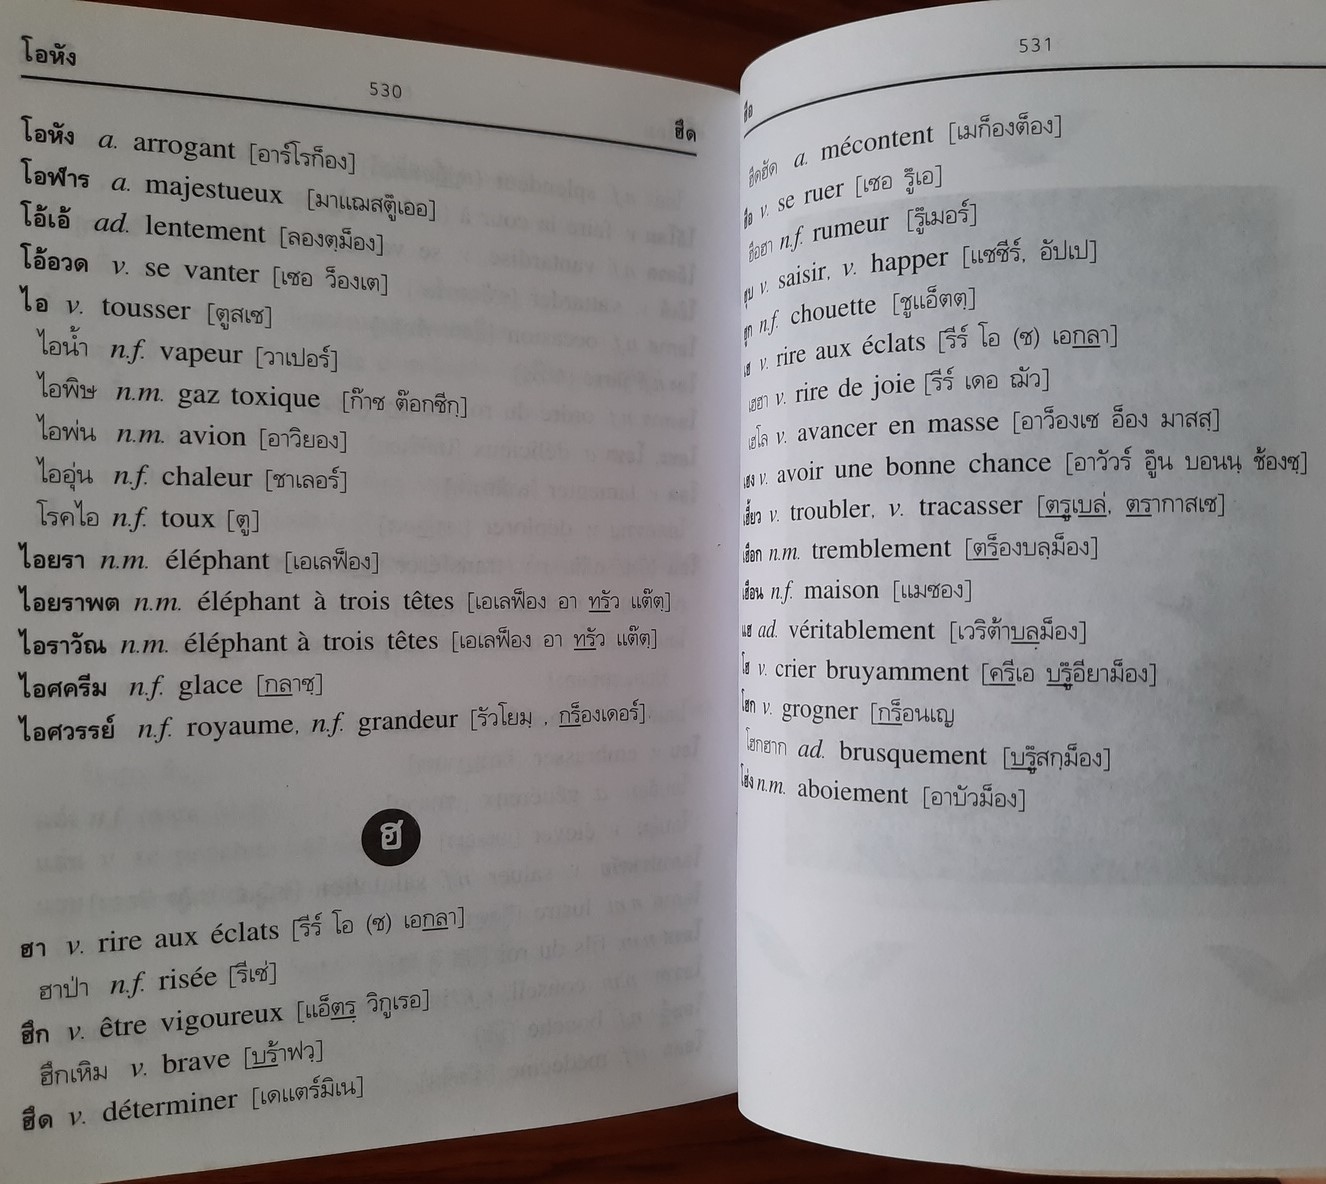 โอหัง
530
ฮึด
โอหัง a. arrogant [อาร์โรก็อง]
โอฬาร a. majestueux [มาแฌสตู๊เออ]
โอ้เอ้ ad. lentement [ลองตฺม็อง]
โอ้อวด v. se vanter [เซอ ว็องเต]
ไอ v. tousser [ตูสเซ]
ไอน้ำ n.f. vapeur [วาเปอร์]
ไอพิษ n.m. gaz toxique [ก๊าซ ต๊อกซีกฺ]
ไอพ่น n.m. avion [อาวิยอง]
ไออุ่น n.f. chaleur [ชาเลอร์]
โรคไอ n.f. toux [ตู]
ไอยรา n.m. éléphant [เอเลฟ็อง]
ไอยราพต n.m. éléphant à trois têtes [เอเลฟ็อง อา ทรัว แต๊ตฺ]
ไอราวัณ n.m. éléphant à trois têtes [เอเลฟ็อง อา ทรัว แต๊ตฺ]
ไอศครีม n.f. glace [กลาซฺ]
ไอศวรรย์ n.f. royaume, n.f. grandeur [รัวโยมฺ , กร็องเดอร์]
ฮ
ฮา v. rire aux éclats [รีร์ โอ (ซ) เอกลา]
ฮาป่า n.f. risée [รีเซ่]
ฮึก v. être vigoureux [แอ็ตรฺ วิกูเรอ]
ฮึกเหิม v. brave [บร้าฟวฺ]
ฮึด v. déterminer [เดแตร์มิเน]
531
ฮือ
ฮึดฮัด a. mécontent [เมก็องต็อง]
ฮือ v. se ruer [เซอ รู๊เอ]
ฮือฮา n.f. rumeur [รู๊เมอร์]
ฮุบ v. saisir, v. happer [แซซีร์, อัปเป]
ฮูก n.f. chouette [ชูแอ็ตตฺ]
เฮ v. rire aux éclats [รีร์ โอ (ซ) เอกลา]
เฮฮา v. rire de joie [รีร์ เดอ ฌัว]
เฮโล v. avancer en masse [อาว็องเซ อ็อง มาสสฺ]
เฮง v. avoir une bonne chance [อาวัวร์ อู๊น บอนนฺ ช้องซฺ]
เฮี้ยว v. troubler, v. tracasser [ตรูเบล่, ตรากาสเซ]
เฮือก n.m. tremblement [ตร็องบลฺม็อง]
เฮือน n.f. maison [แมซอง]
แฮ ad. véritablement [เวริต้าบลฺม็อง]
โฮ v. crier bruyamment [ครีเอ บรู๊อียาม็อง]
โฮก v. grogner [กร็อนเญ
โฮกฮาก ad. brusquement [บรู๊สกฺม็อง]
โฮ่ง n.m. aboiement [อาบัวม็อง]